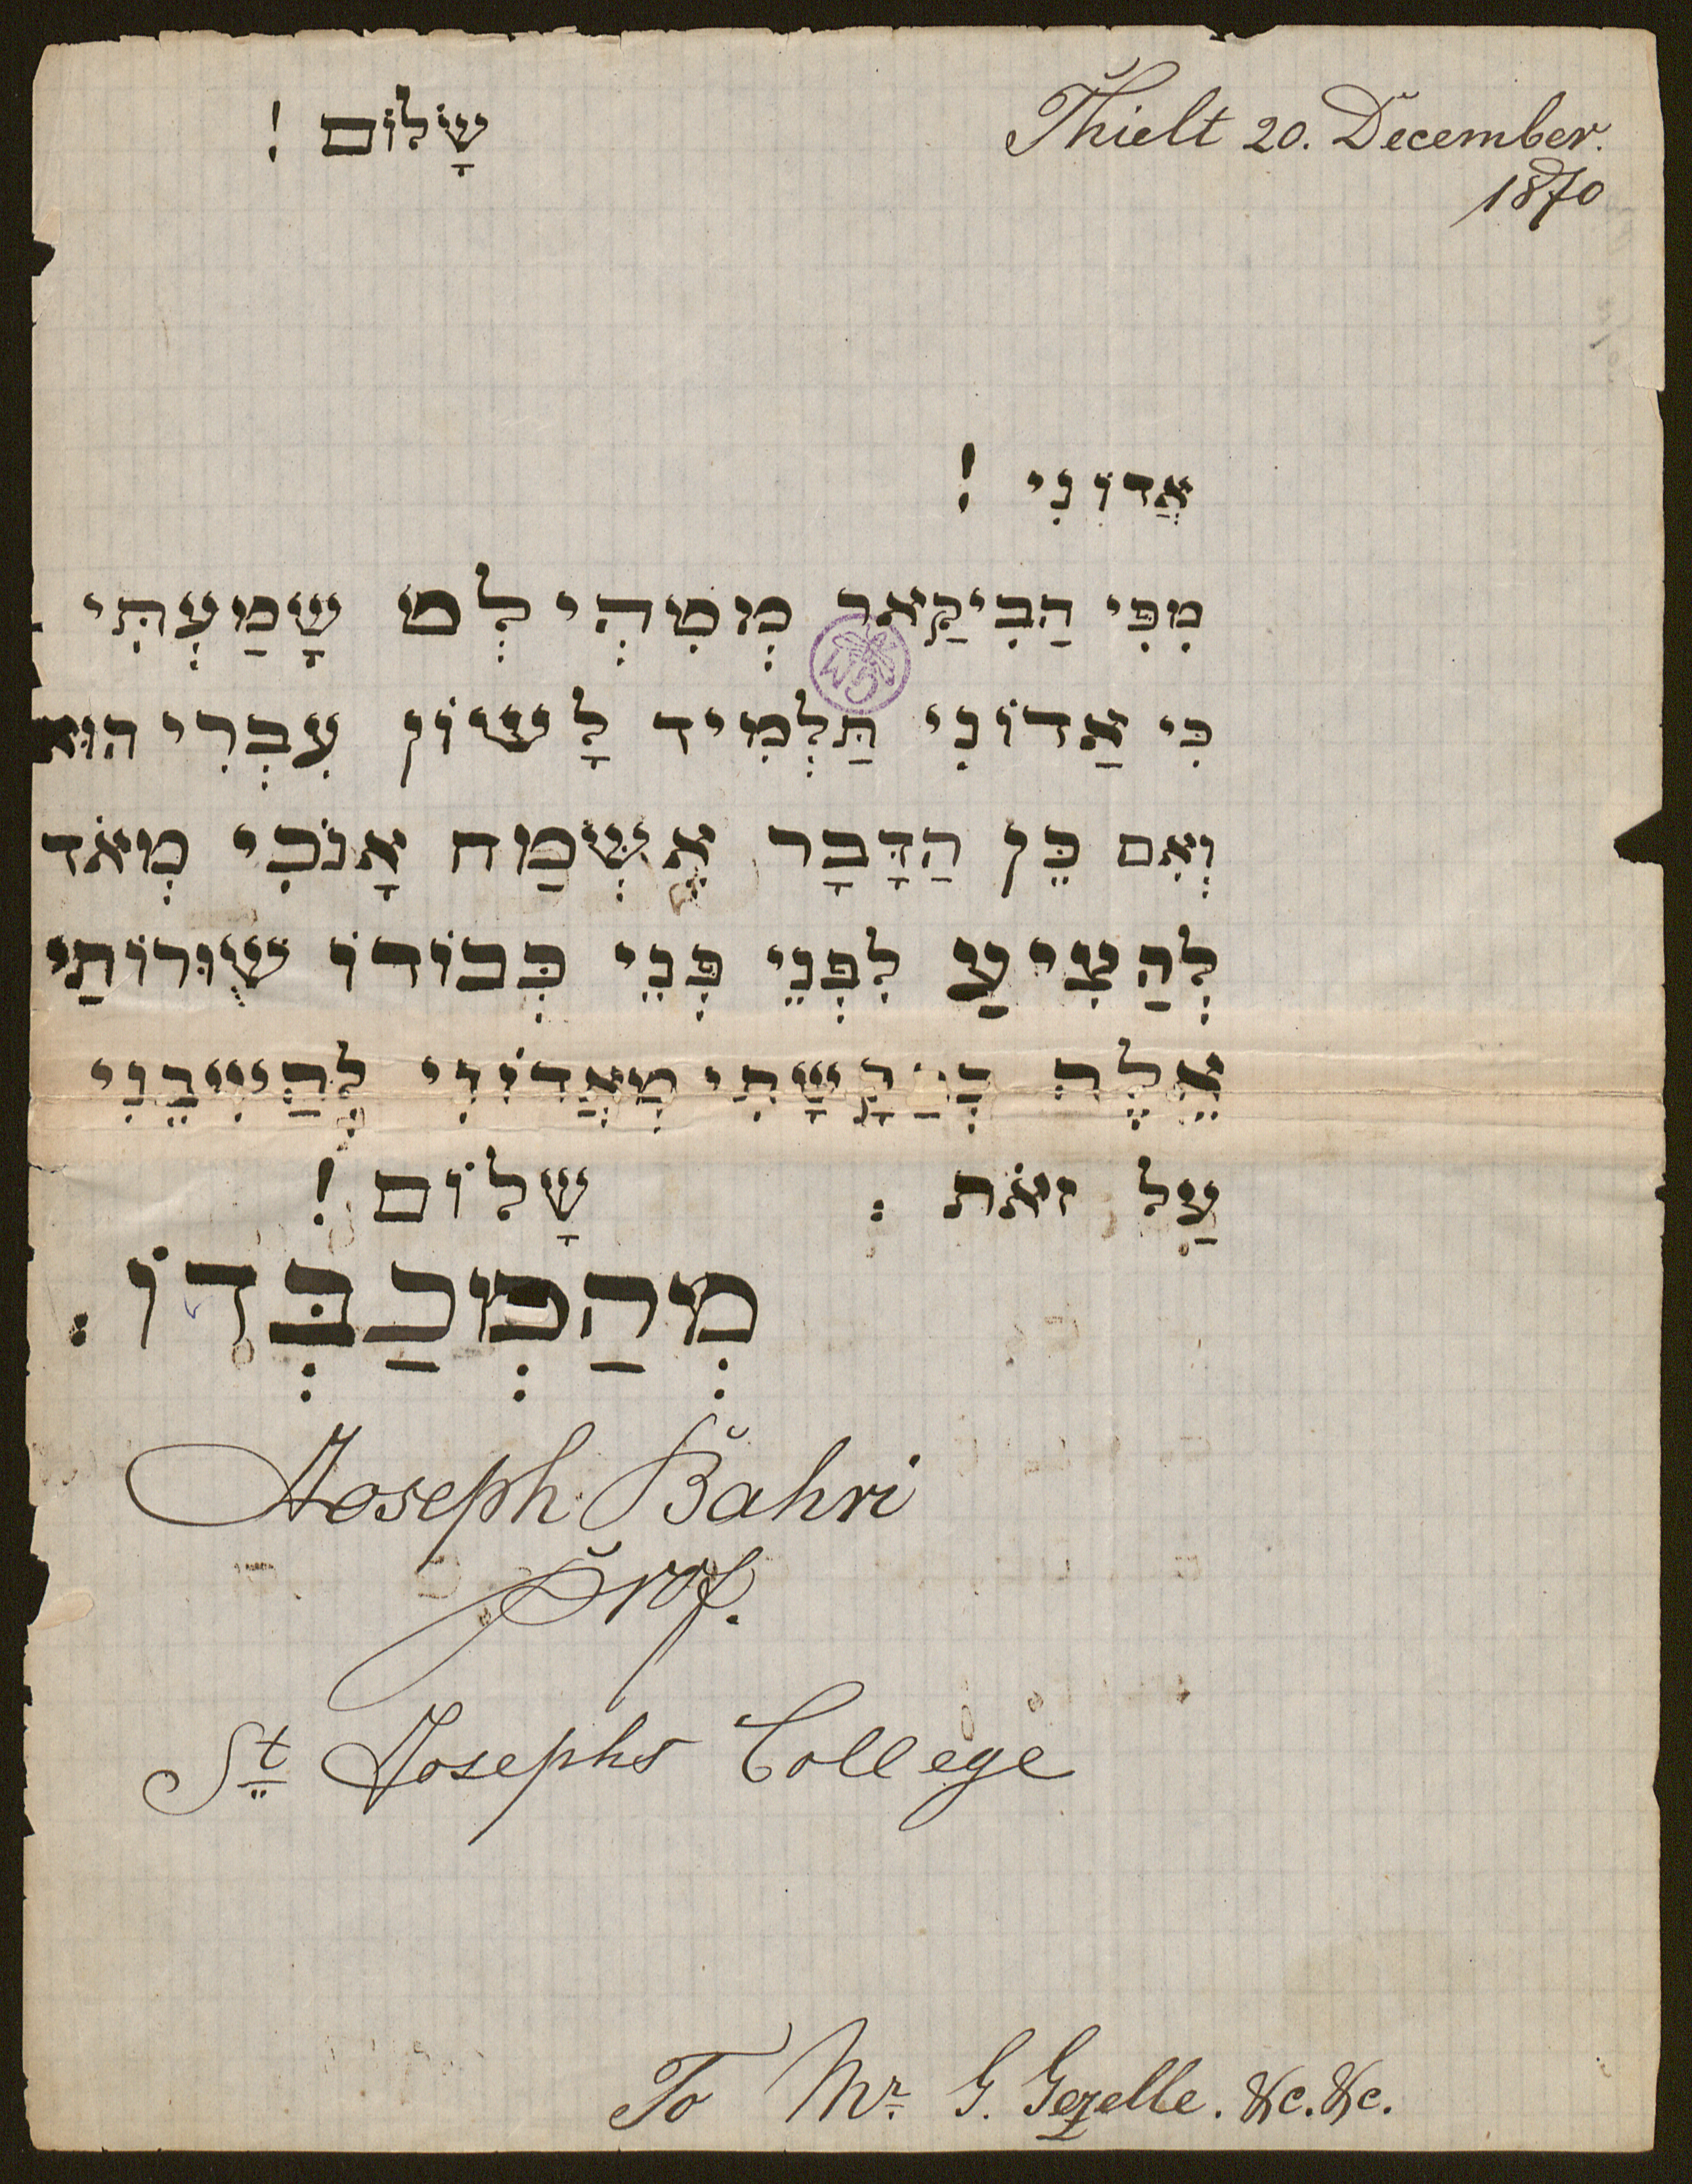 Thielt 20. December.
1870
שָׁלוֹם !
אֲדוֹנִי !
מִפִּי הַבִיקַאר מְטִהְילְט שָׁמַעְתִּי
כִּי אַדוֹנִי תַּלְמִיד לָשׁוֹן עִבְרִי הוּא
וְאִם כֵּן הַדָּבָר אֶשְׂמַח אָנֹכִי מְאֹד
לְהַצִיעַ לִפְנֵי פְּנֵי כְּבוֹדוֹ שְׁוּרוֹתַי
אֵלֶה מֵאֲדוֹנִי לַהֲשִׁיבֵנִי
עַל זאֹת : שָׁלוֹם !
מְהַמְכַבְּדוֹ :
Joseph Bahri
Prof.
St Josephs College
To Mr. G. Gezelle. &c. &c.